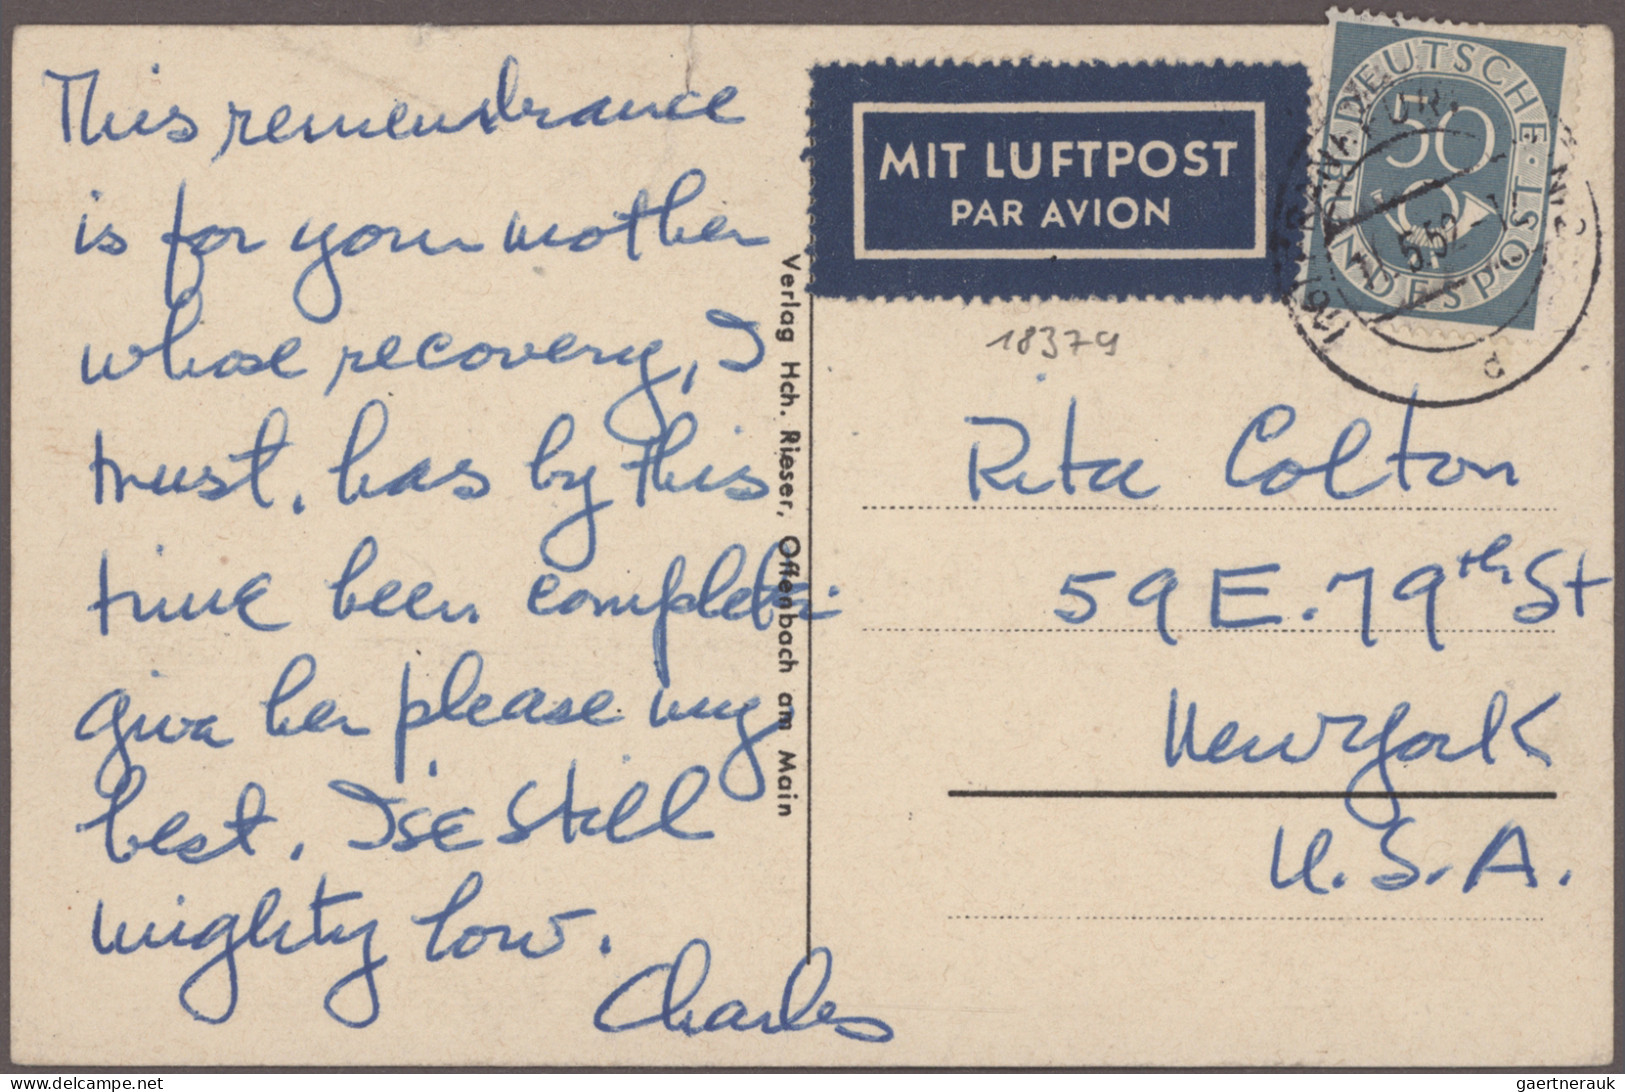 This remembrance
is for your mother
whose recovery, I
trust, has by this
time been complete.
give her please my
best. Ilse still
mighty low.
Charles
Verlag Hch. Rieser, Offenbach am Main
MIT LUFTPOST
PAR AVION
DEUTSCHE BUNDESPOST
50
5.52
18379
Rita Colton
59 E. 79th St
New York
U.S.A.
gaertnerauk